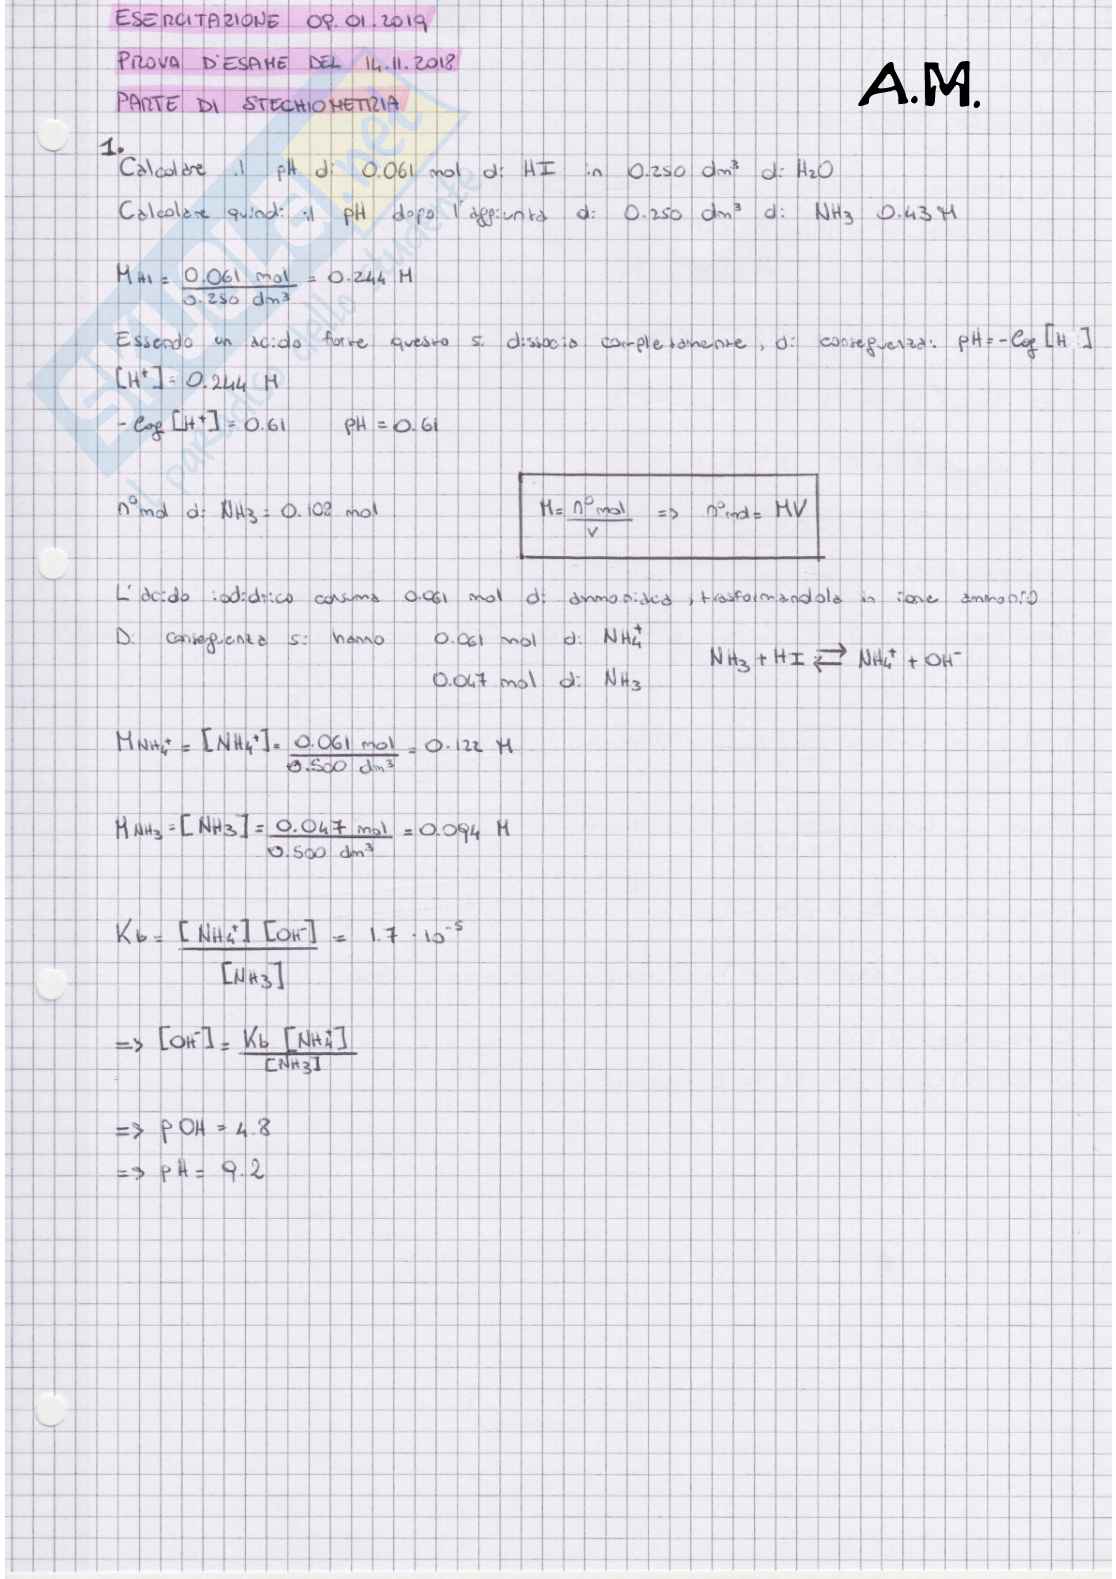 ESERCITAZIONE 09.01.2019
PROVA D'ESAME DEL 14.11.2018
PARTE DI STECHIOMETRIA
A.M.
1.
Calcolare il pH di 0.061 mol di HI in 0.250 dm³ di H₂O
Calcolare quindi il pH dopo l'aggiunta di 0.250 dm³ di NH₃ 0.43 M
M HI = 0.061 mol / 0.250 dm³ = 0.244 M
Essendo un acido forte questo si dissocia completamente, di conseguenza: pH = -log [H ]
[H⁺] = 0.244 M
- log [H⁺] = 0.61 pH = 0.61
n° mol di NH₃ = 0.108 mol
M = n° mol / V => n° mol = MV
L'acido iodidrico consuma 0.061 mol di ammoniaca, trasformandola in ione ammonio
Di conseguenza si hanno 0.061 mol di NH₄⁺
0.047 mol di NH₃
NH₃ + HI ⇄ NH₄⁺ + OH⁻
M NH₄⁺ = [NH₄⁺] = 0.061 mol / 0.500 dm³ = 0.122 M
M NH₃ = [NH₃] = 0.047 mol / 0.500 dm³ = 0.094 M
Kb = [NH₄⁺] [OH⁻] / [NH₃] = 1.7 · 10⁻⁵
=> [OH⁻] = Kb [NH₄⁺] / [NH₃]
=> pOH = 4.8
=> pH = 9.2
SKUOLA.net
il paradiso dello studente